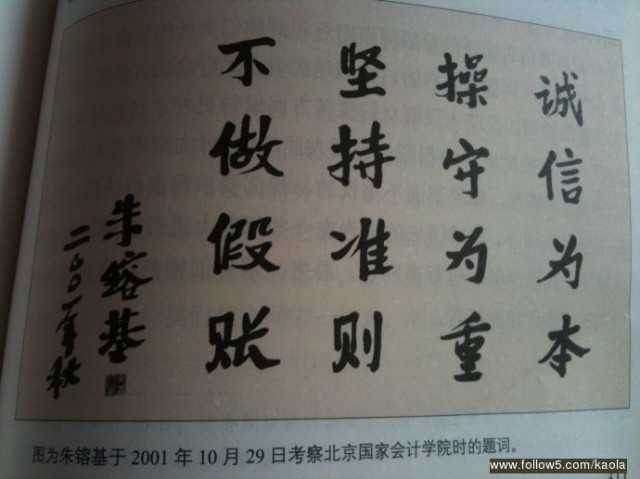 诚信为本
操守为重
坚持准则
不做假账
朱镕基
二〇〇一年秋
图为朱镕基于 2001 年 10 月 29 日考察北京国家会计学院时的题词。
www.follow5.com/kaola